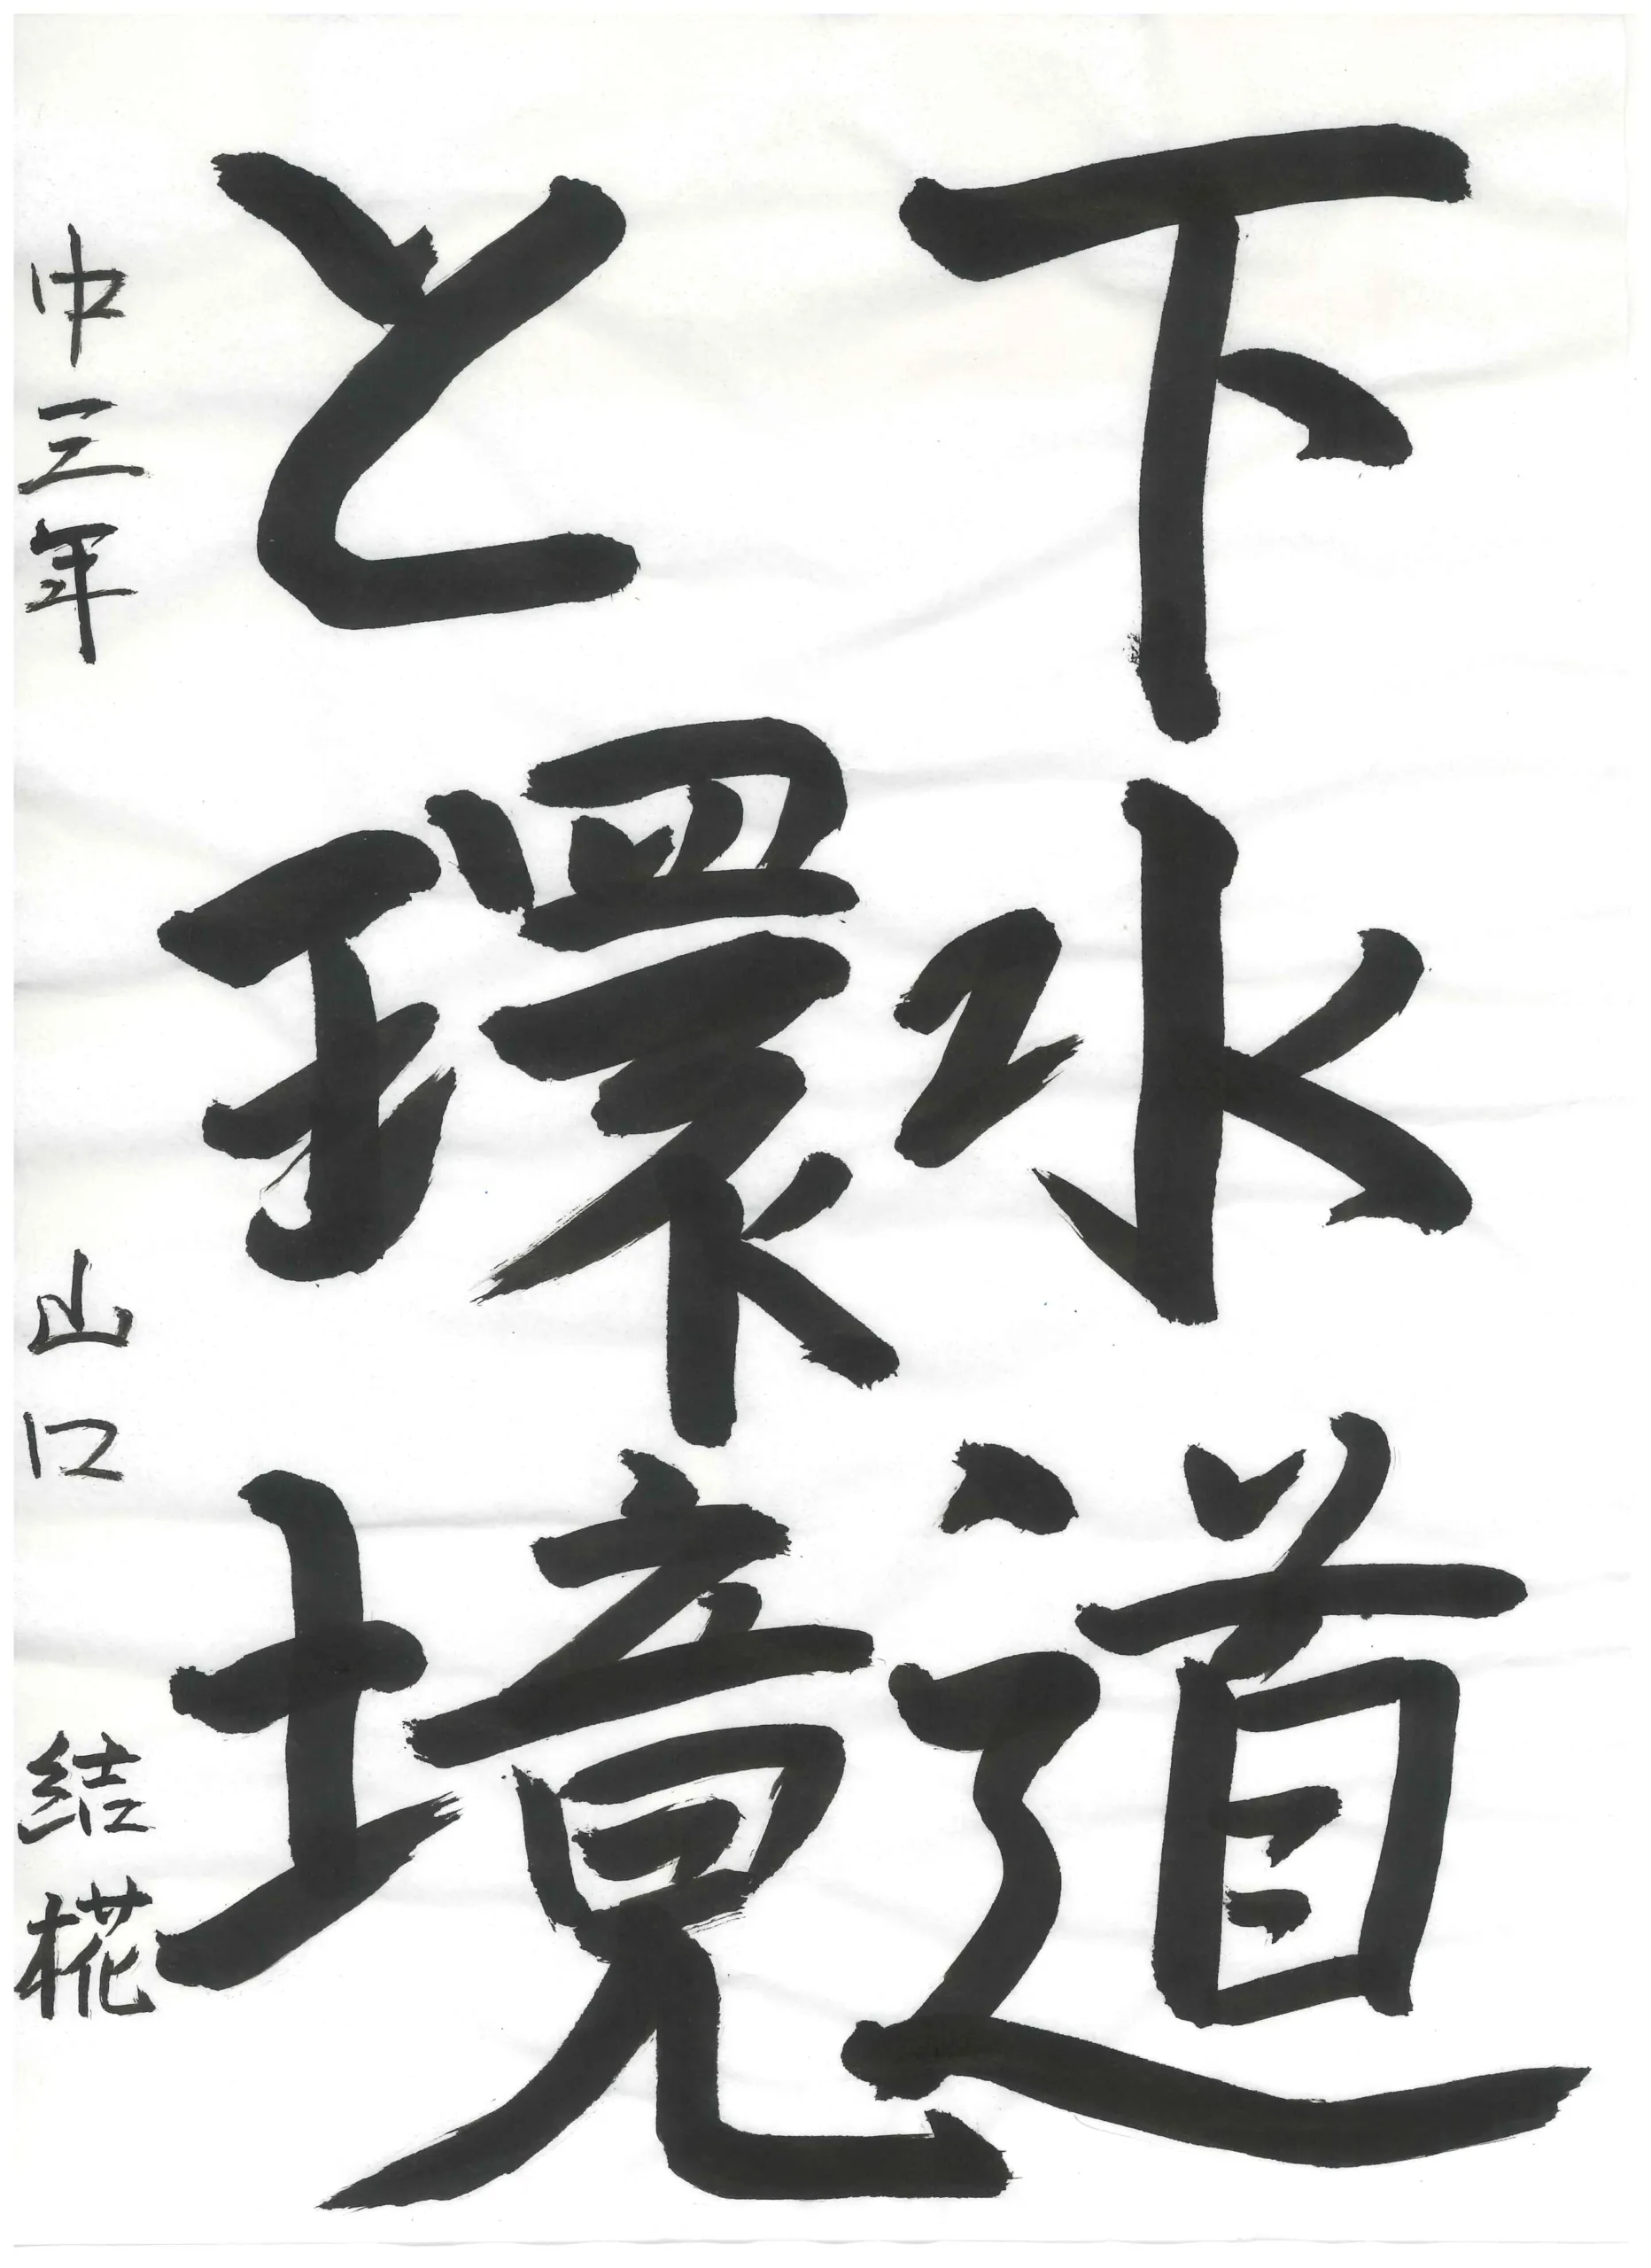 下水道
と環境
中三年 山口 結椛